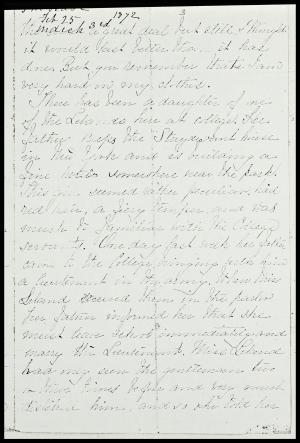 Feb 25 1872 3
March 3rd
a great deal but still I thought
it would last better than it has
done. But you remember that I am
very hard on my clothes.
There has been a daughter of one
of the Lelands here at college. Her
father keeps the "Sturtevant house"
in New York and is building a
fine hotel somewhere near the park.
This girl seemed rather peculiar, had
red hair, a fiery temper, and was
much to familiar with the College
servants. One day last week her father
came to the College bringing with him
a lieutenant in the army. When Miss
Leland received them in the parlor
her father informed her that she
must leave school immediately and
marry the Lieutenant. Miss Leland
had only seen the gentleman two
or three times before and very much
disliked him, and so she told her